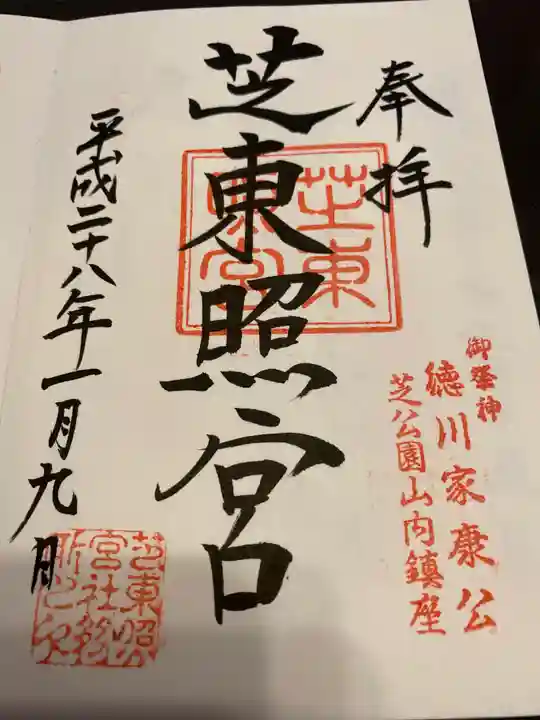 奉拝
御祭神
徳川家康公
芝公園山内鎮座
芝東照宮
芝東照宮
平成二十八年一月九日
芝東照
宮社務
所之印